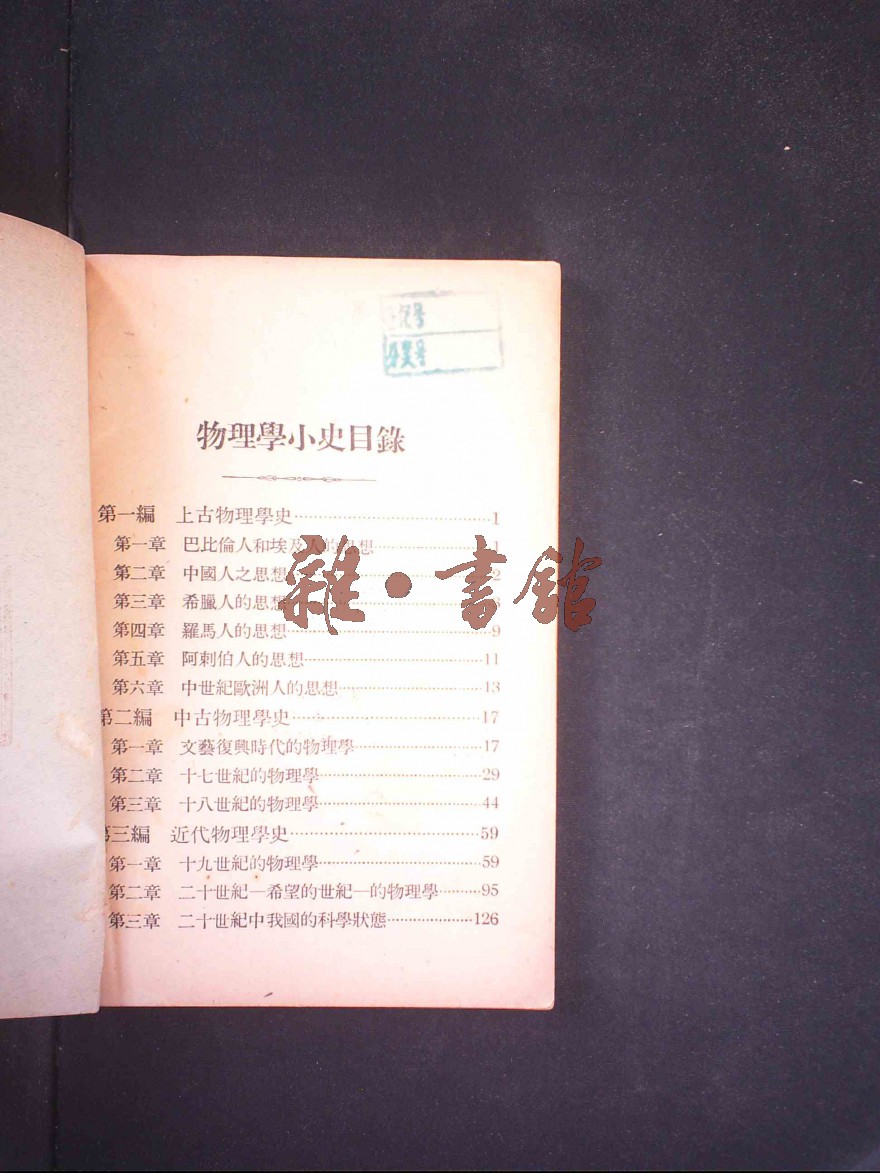 物理學小史目錄
第一編 上古物理學史 1
第一章 巴比倫人和埃及人的思想 1
第二章 中國人之思想 2
第三章 希臘人的思想
第四章 羅馬人的思想 9
第五章 阿剌伯人的思想 11
第六章 中世紀歐洲人的思想 13
第二編 中古物理學史 17
第一章 文藝復興時代的物理學 17
第二章 十七世紀的物理學 29
第三章 十八世紀的物理學 44
第三編 近代物理學史 59
第一章 十九世紀的物理學 59
第二章 二十世紀—希望的世紀—的物理學 95
第三章 二十世紀中我國的科學狀態 126
雜·書館